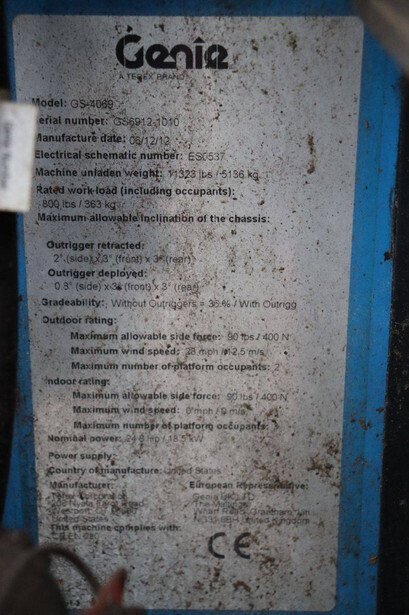 Genie
A TEREX BRAND
Model: GS-4069
Serial number: GS6912-1010
Manufacture date: 06/12/12
Electrical schematic number: ES0537
Machine unladen weight: 11323 lbs / 5136 kg
Rated work load (including occupants):
800 lbs / 363 kg
Maximum allowable inclination of the chassis:
Outrigger retracted:
2° (side) x 3° (front) x 3° (rear)
Outrigger deployed:
(side) x 3° (front) x 3° (rear)
Gradeability: Without Outriggers = 35 % / With Outrigg
Outdoor rating:
Maximum allowable side force: 90 lbs / 400 N
Maximum wind speed: 28 mph / 12.5 m/s
Maximum number of platform occupants: 2
Indoor rating:
Maximum allowable side force: 90 lbs / 400 N
Maximum wind speed: 0 mph / 0 m/s
Maximum number of platform occupants:
Nominal power: kW
Power supply
Country of manufacture: United States
Manufacturer: European Representative:
Terex Corporation Genie UK LTD
The
Road
United States United Kingdom
This machine complies with:
CE